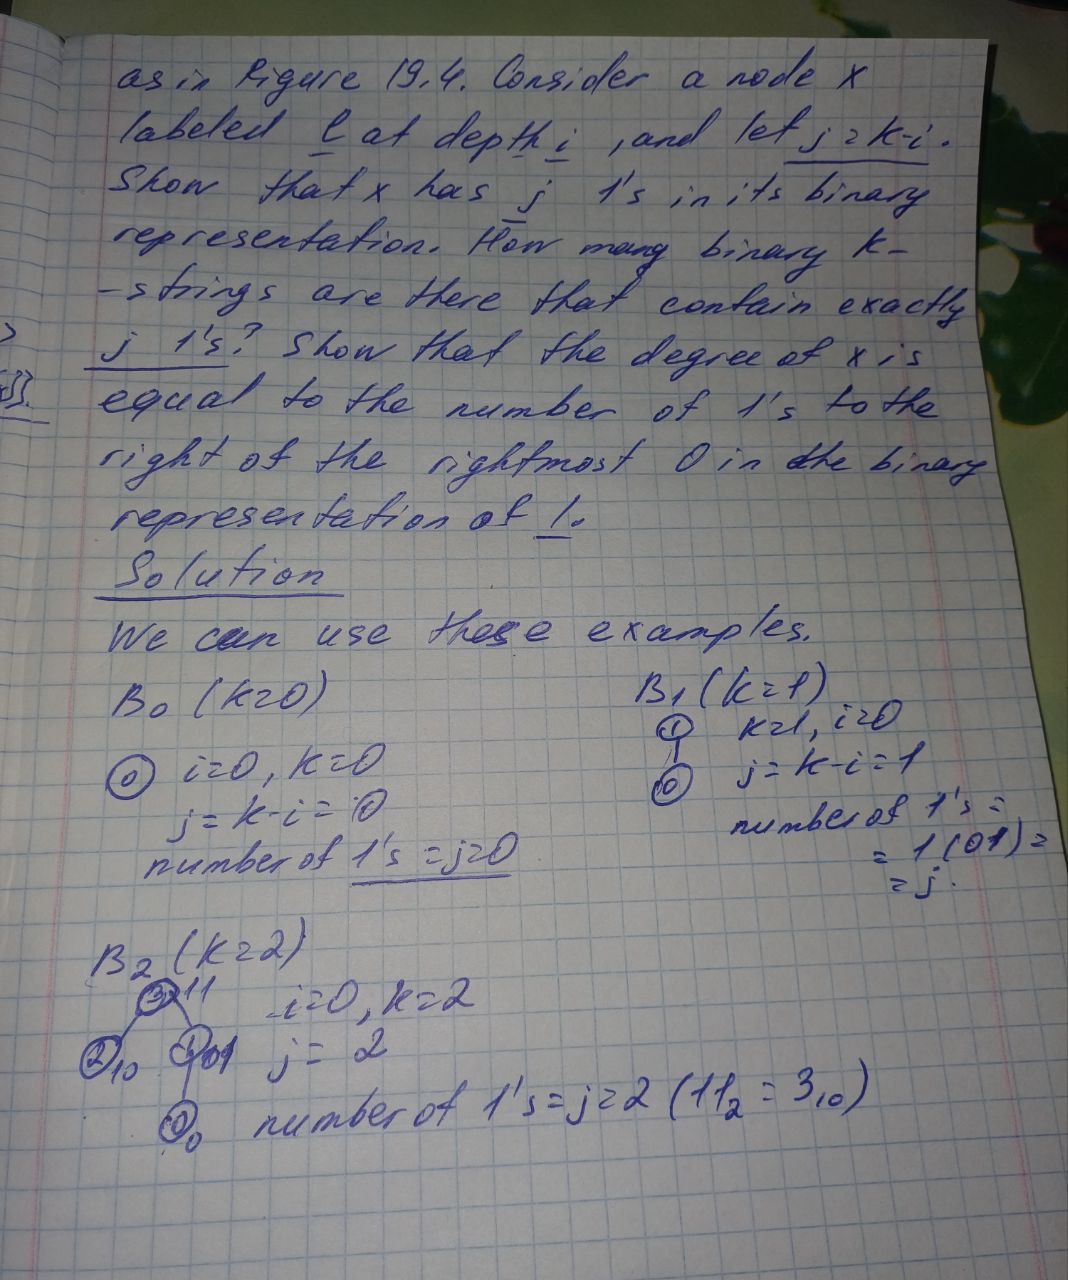 as in Figure 19.4. Consider a node x
labeled l at depth i, and let j = k-i.
Show that x has j 1's in its binary
representation. How many binary k-
-strings are there that contain exactly
j 1's? Show that the degree of x is
equal to the number of 1's to the
right of the rightmost 0 in the binary
representation of l.
Solution
We can use these examples.
B₀ (k=0)
0 i=0, k=0
j = k-i = 0
number of 1's = j=0
B₁ (k=1)
1 k=1, i=0
0 j = k-i = 1
number of 1's =
= 1 (01) =
= j.
B₂ (k=2)
3 11 i=0, k=2
2 10 1 01 j = 2
0 0 number of 1's = j = 2 (11₂ = 3₁₀)